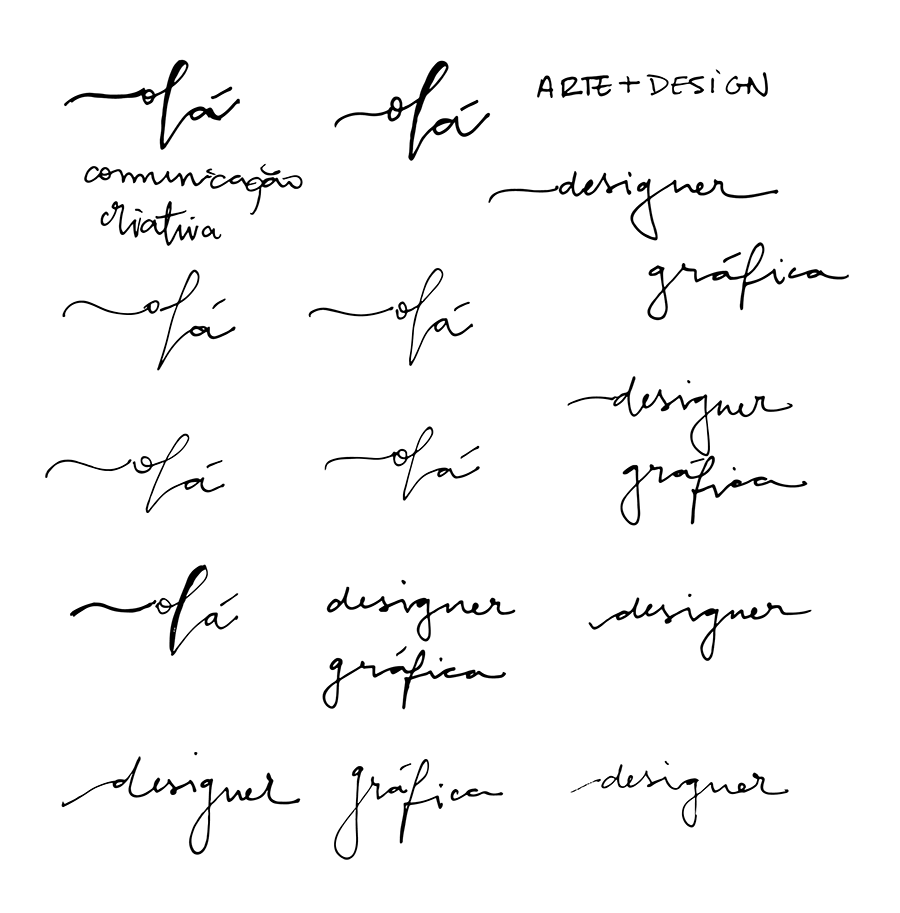 olá
olá
ARTE + DESIGN
comunicação
criativa
designer
gráfica
olá
olá
designer
gráfica
olá
olá
olá
designer
gráfica
designer
designer
gráfica
designer